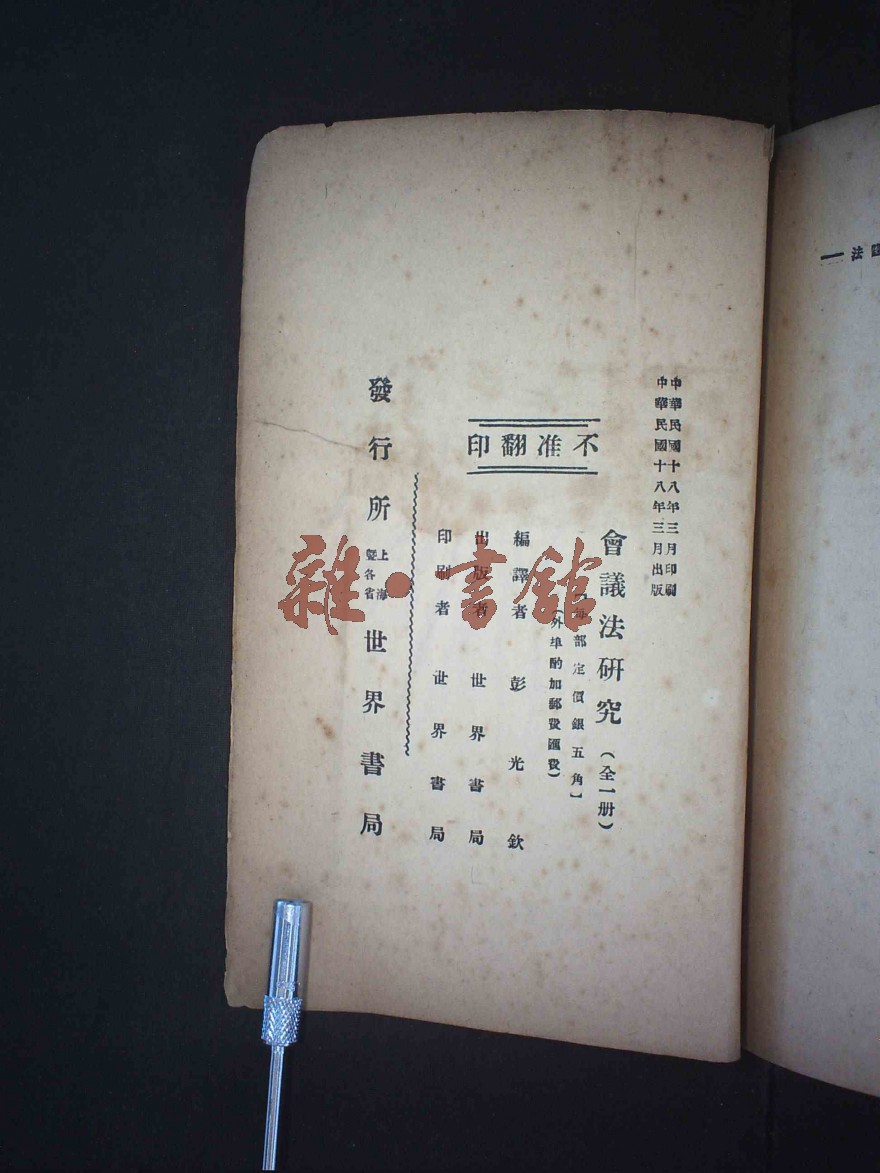 中華民國十八年三月印刷
中華民國十八年三月出版
不准翻印
會議法研究（全一册）
部定價銀五角】
（外埠酌加郵費匯費）
編譯者 彭光欽
出版者 世界書局
印刷者 世界書局
發行所 上海暨各省 世界書局
雜·書館
法